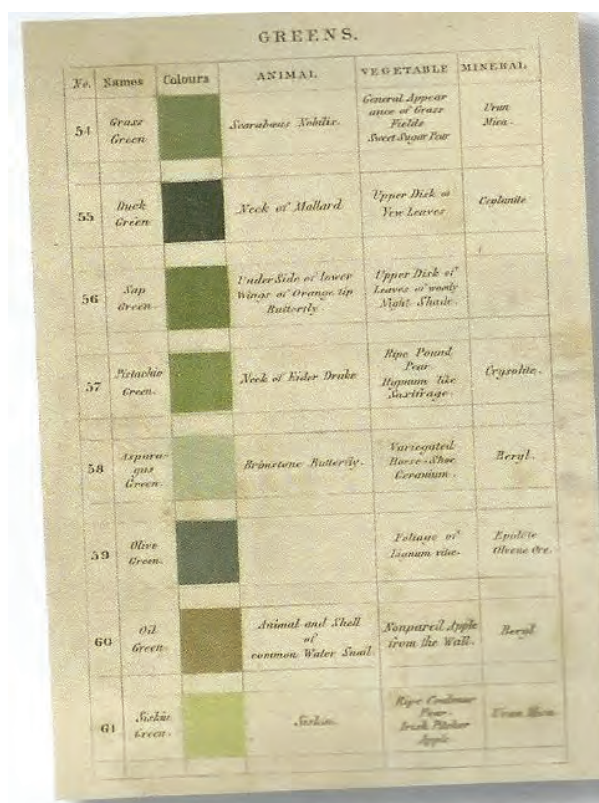 GREENS.
No. Names Colours ANIMAL VEGETABLE MINERAL
54 Grass Green Scarabæus Nobilis. General Appearance of Grass Fields Sweet Sugar Pear Uran Mica.
55 Duck Green Neck of Mallard Upper Disk of Yew Leaves Ceylanite
56 Sap Green Under Side of lower Wings of Orange tip Butterfly. Upper Disk of Leaves of woody Night Shade.
57 Pistachio Green. Neck of Eider Drake Ripe Pound Pear Hypnum like Saxifrage. Crysolite.
58 Asparagus Green. Brimstone Butterfly. Variegated Horse-Shoe Geranium. Beryl.
59 Olive Green. Foliage of Lignum vitæ. Epidote Olvene Ore.
60 Oil Green. Animal and Shell of common Water Snail. Nonpareil Apple from the Wall. Beryl
61 Siskin Green. Siskin. Ripe Coalmar Pear. Irish Pitcher Apple Uran Mica